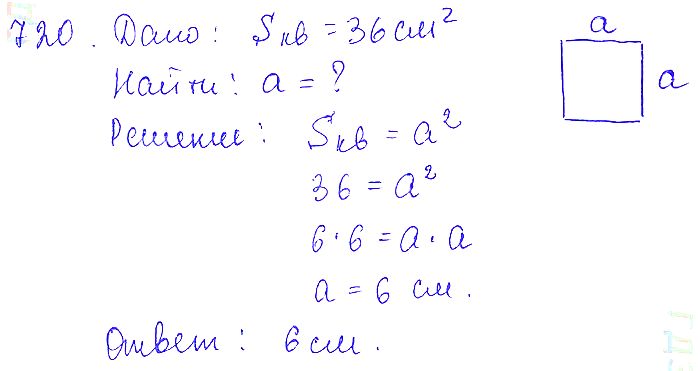 720. Дано: Sкв = 36 см²
a
Найти: a = ?
a
Решение: Sкв = a²
36 = a²
6·6 = a·a
a = 6 см.
Ответ: 6 см.